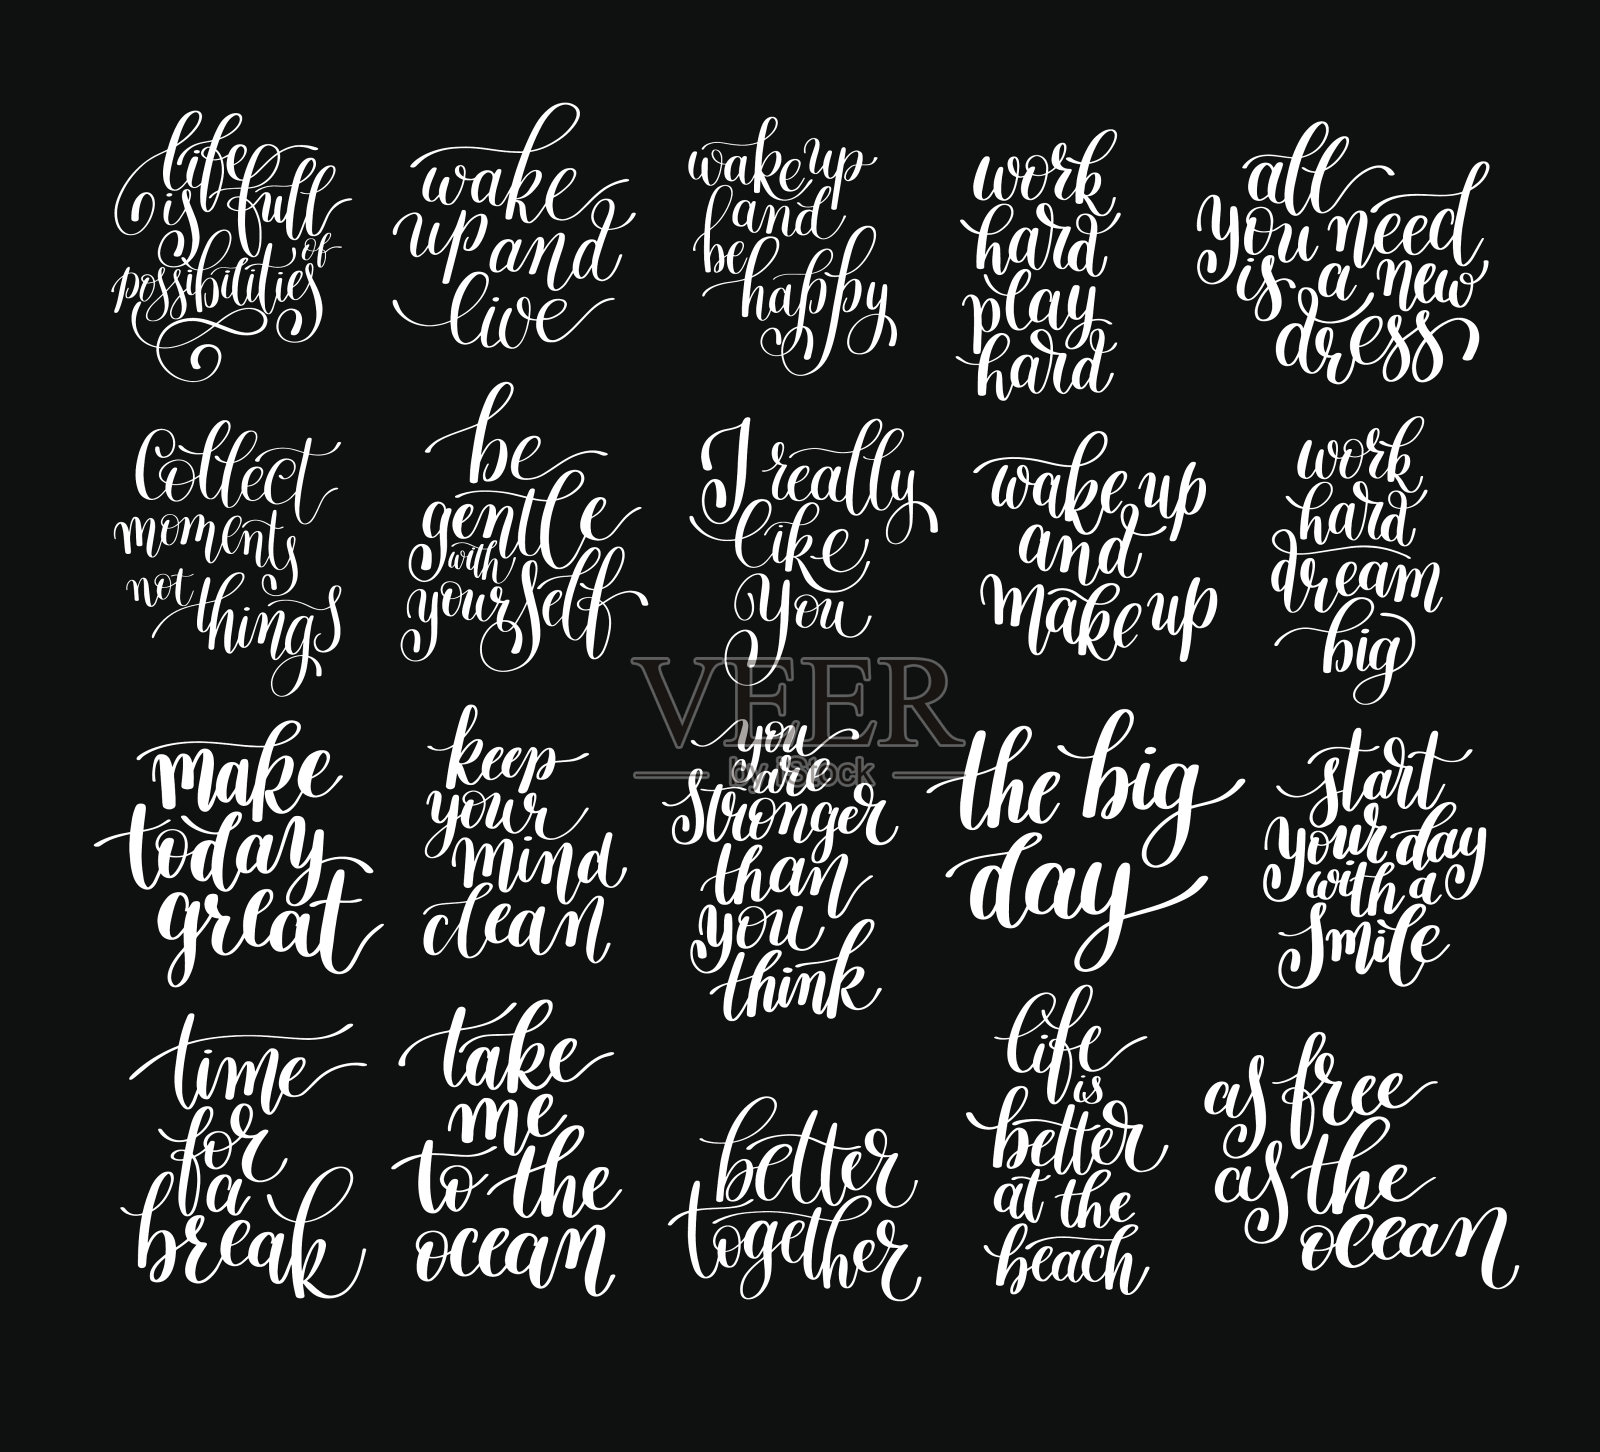 life
is full
of
possibilities
wake
up and
live
wake up
and
be
happy
work
hard
play
hard
all
you need
is a new
dress
Collect
moments
not
things
be
gentle
with
yourself
I really
like
you
wake up
and
make up
work
hard
dream
big
make
today
great
keep
your
mind
clean
you
are
stronger
than
you
think
the big
day
start
your day
with a
smile
time
for
a
break
take
me
to the
ocean
better
together
life
is
better
at the
beach
as free
as the
ocean
VEER
by iStock